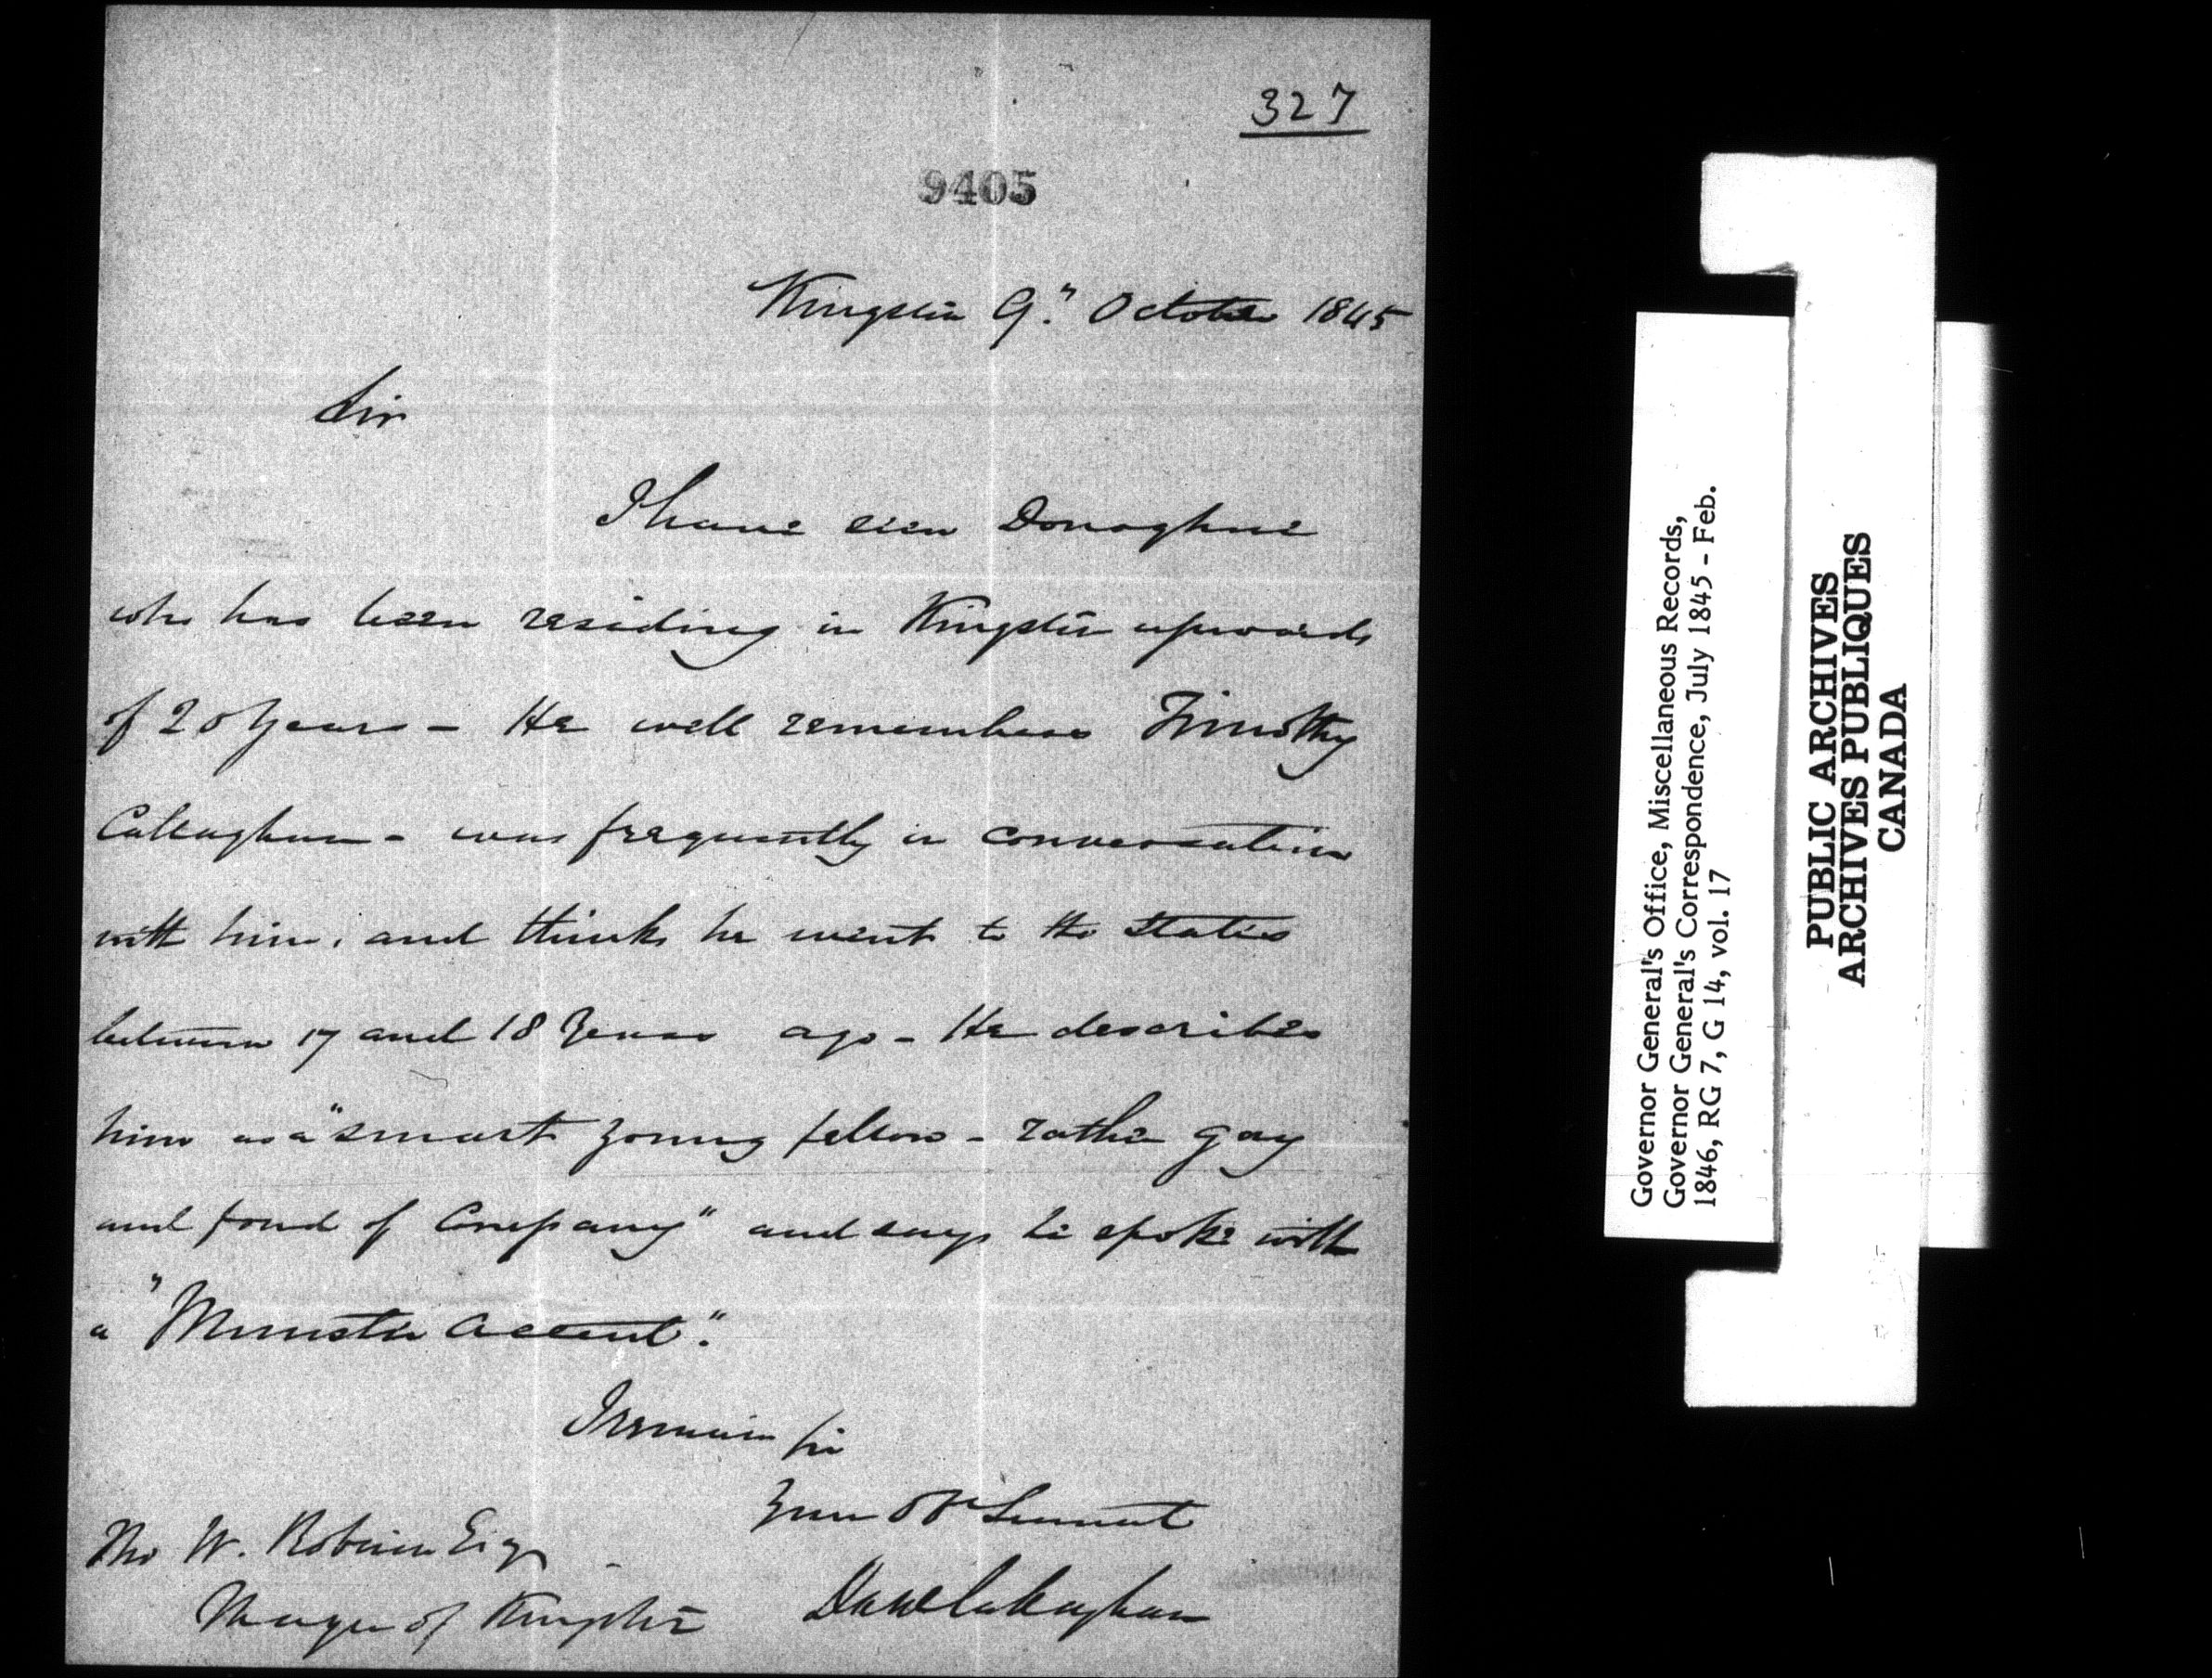 327
9405
Kingston 9." October 1845
Sir
I have seen Donoghue
who has been residing in Kingston upwards
of 20 Years - He well remembers Timothy
Callaghan - was frequently in conversation
with him, and thinks he went to the States
between 17 and 18 Years ago - He describes
him as a "smart young fellow - rather gay
and fond of Company" and says he spoke with
a "Munster accent".
I remain Sir
Your Ob Servant
W. Robinson Esqr
Mayor of Kingston
Callaghan
Governor General's Office, Miscellaneous Records,
Governor General's Correspondence, July 1845 - Feb.
1846, RG 7, G 14, vol. 17
PUBLIC ARCHIVES
ARCHIVES PUBLIQUES
CANADA